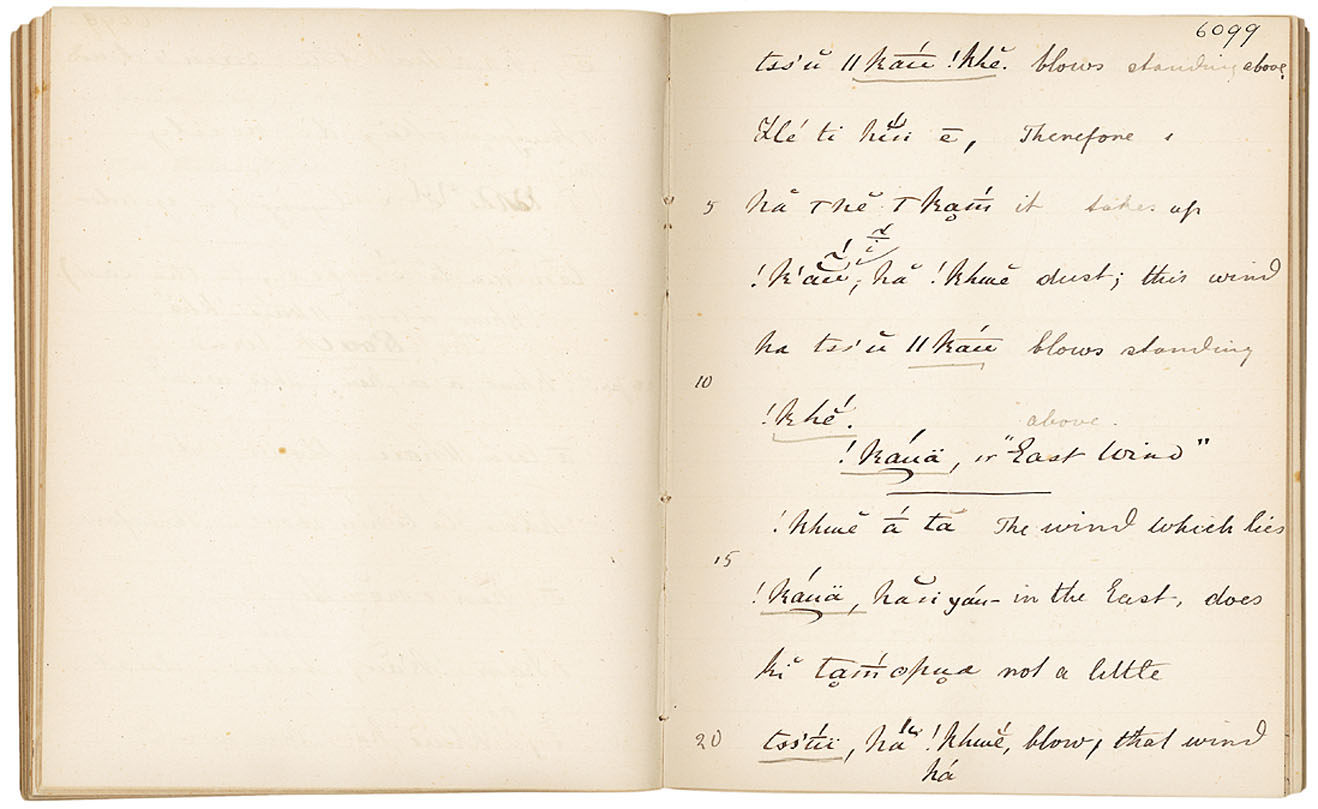 6099
tss'ŭ ǁkáū !khĕ. blows standing above.
Hé ti hĭń ē, Therefore
5 hă ⊤hĕ ⊤kạm̄́ it takes up
!k'ãũ, hă !khwĕ dust; this wind
ha tss'ŭ ǁkáū blows standing
10
!khĕ́. above.
!káuä, or "East Wind"
!khwĕ ā́ tă The wind which lies
15
!káuä, hă ii yáu- in the East, does
kĭ tạm̄́ opụa not a little
20 tss'ū́ï, hă !khwĕ́, blow, that wind
há